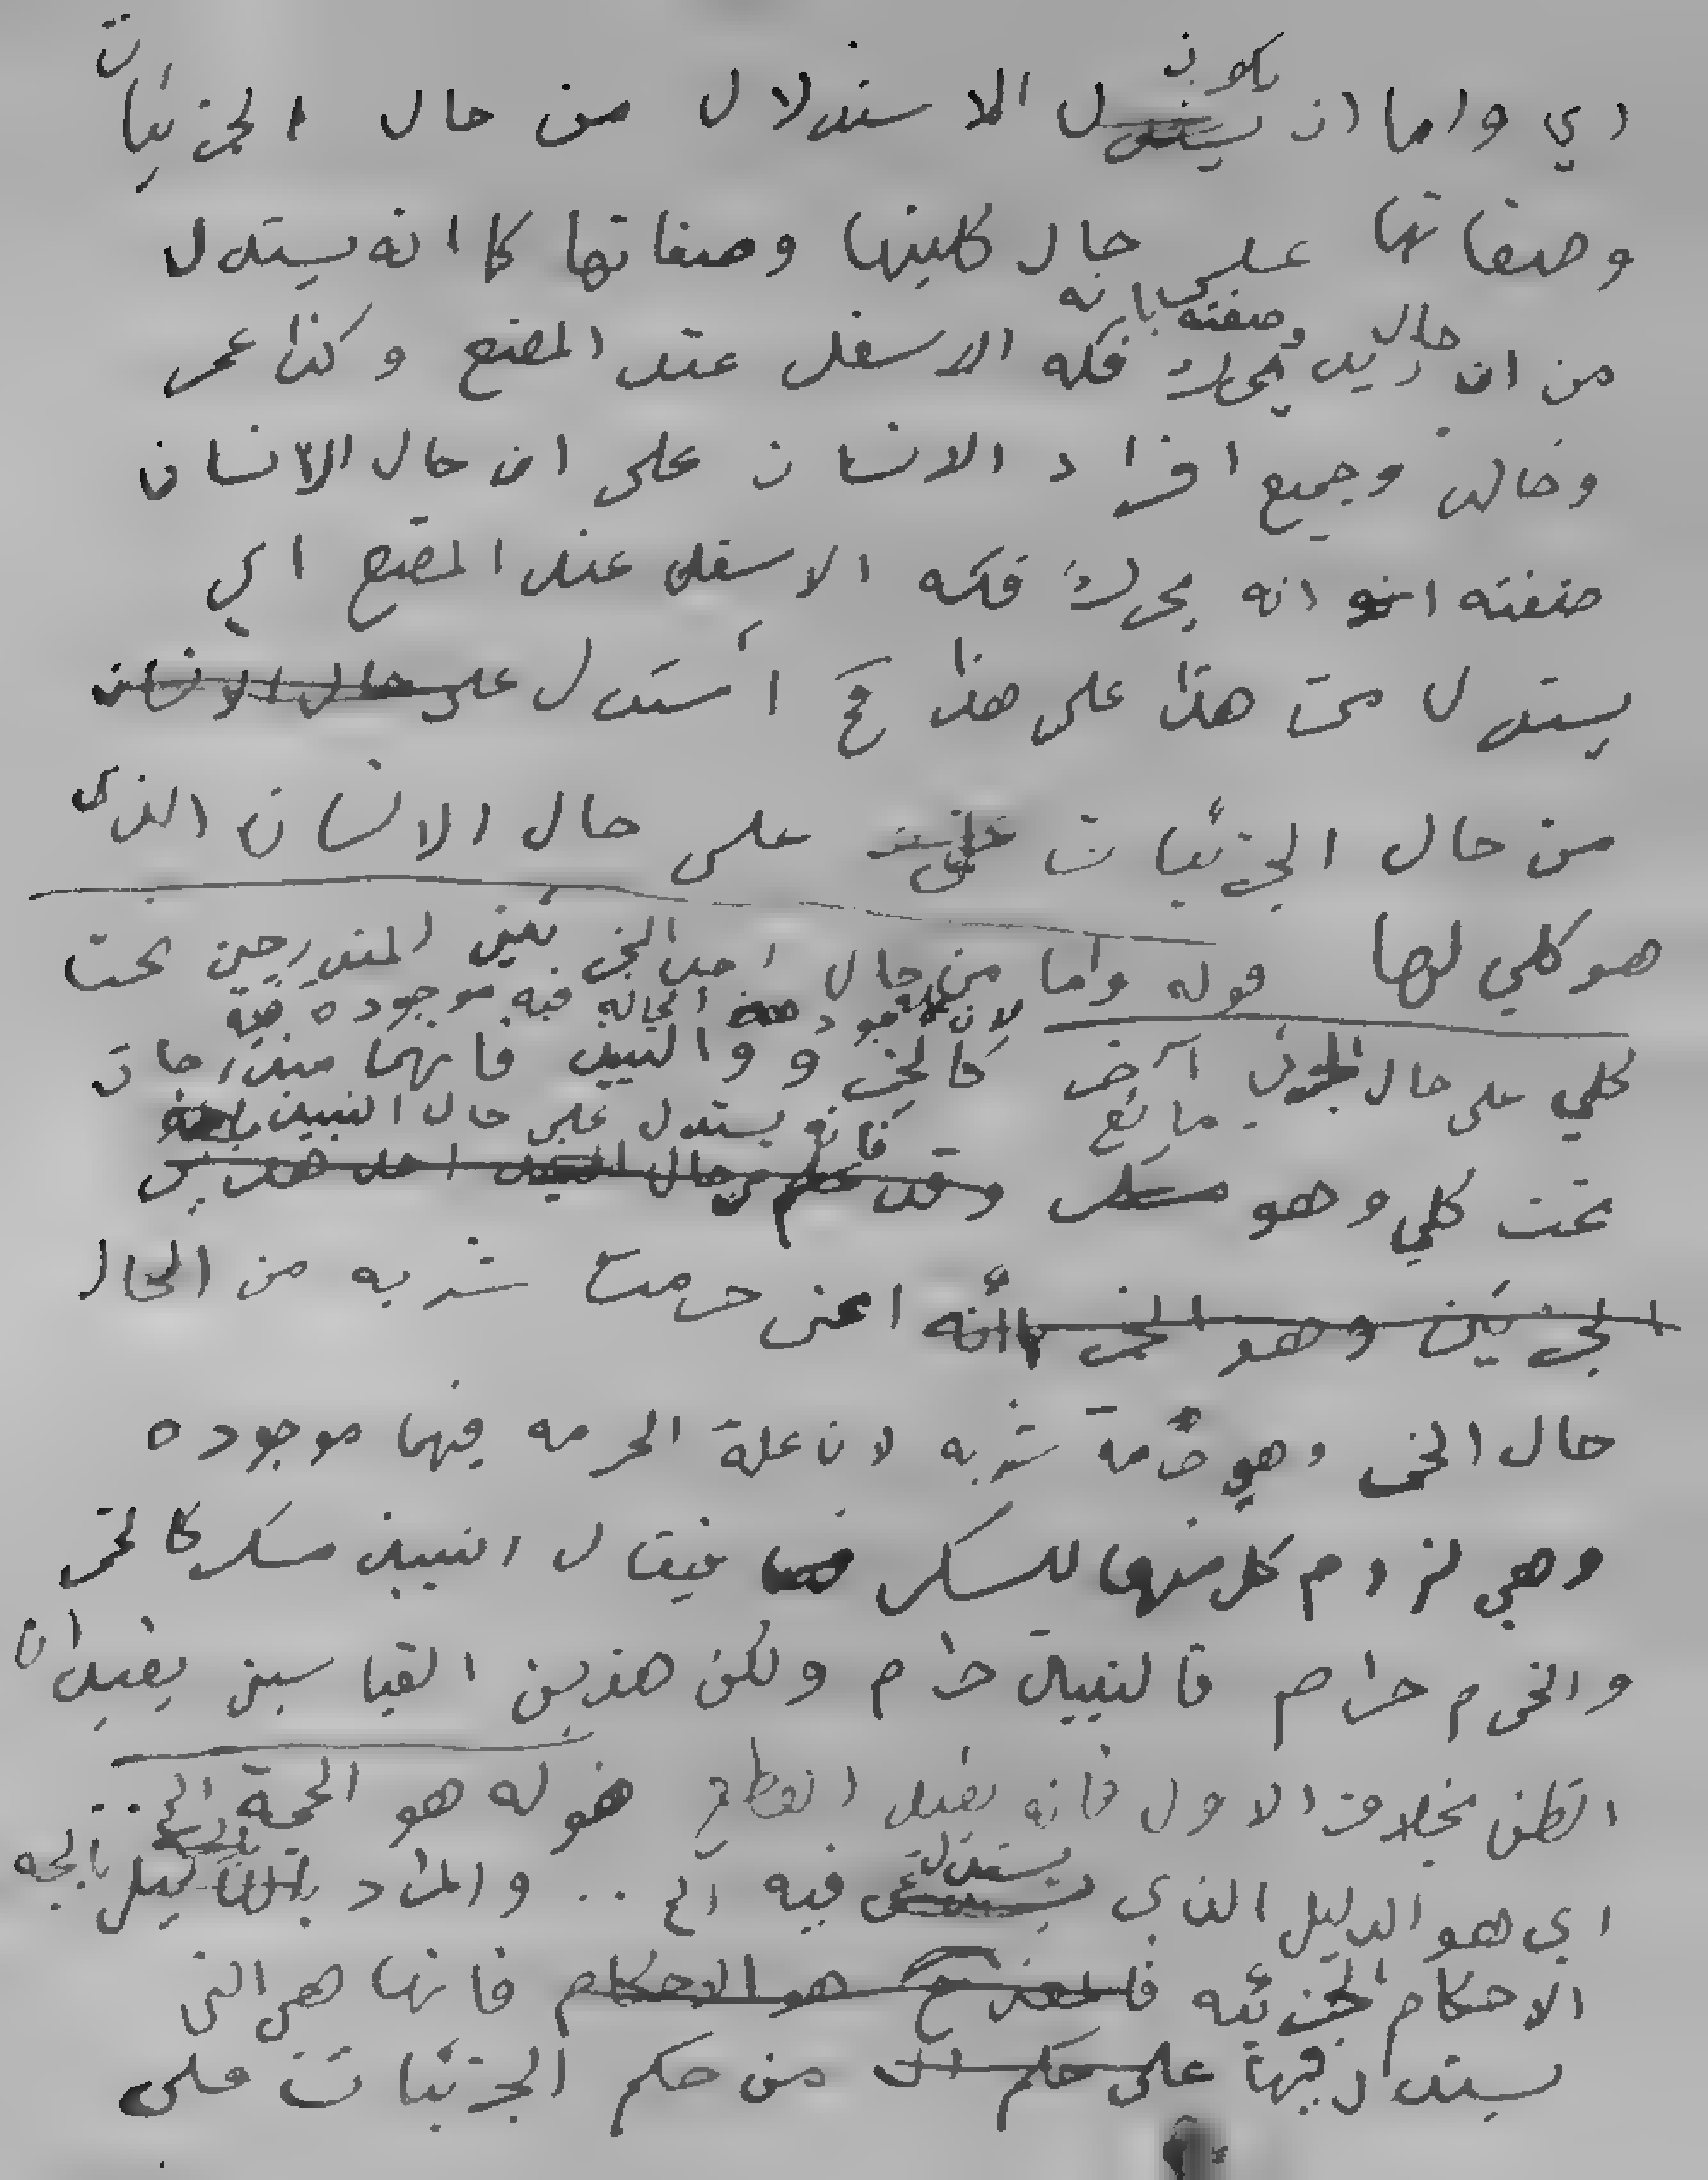 يكون
اي واما ان يستدل الاستدلال من حال الجزئيات
وصفاتها على حال كليتها وصفاتها كما انه يستدل
حال وصفته بانه
من ان زيد يحرك فكه الاسفل عند المضغ وكذا عمر
وخالد وجميع افراد الانسان على ان حال الانسان
صفته انه انه يحرك فكه الاسفل عند المضغ اي
يستدل من هذا على هذا فح استدل على حال الانسان
من حال الجزئيات على حال الانسان الذي
هو كلي لها قوله واما من حال احد الجزئين المندرجين تحت
لان الحاله فيه موجوده فيه
كلي على حال الجزئي آخر كالخمر والنبيذ فانهما مندرجان
مائع فانه يستدل على حال النبيذ
تحت كلي وهو مسكر وقد علم من حال احد هذين
الجزئين وهو الخمر بانه اعني حرمت شربه من الحال
حال الخمر وهو حرمة شربه لان علة الحرمه فيهما موجوده
وهي لزوم كل منهما للسكر فيقال النبيذ مسكر كالخمر
والخمر حرام فالنبيذ حرام ولكن هذين القياسين يفيدان
الظن بخلاف الاول فانه يفيد القطع قوله هو الحجة الخ..
يستدل
اي هو الدليل الذي فيه الخ.. والمراد بالدليل بالحجه
الاحكام الجزئيه هو الاحكام فانها هي التي
يستدل فيها على حكم من حكم الجزئيات على